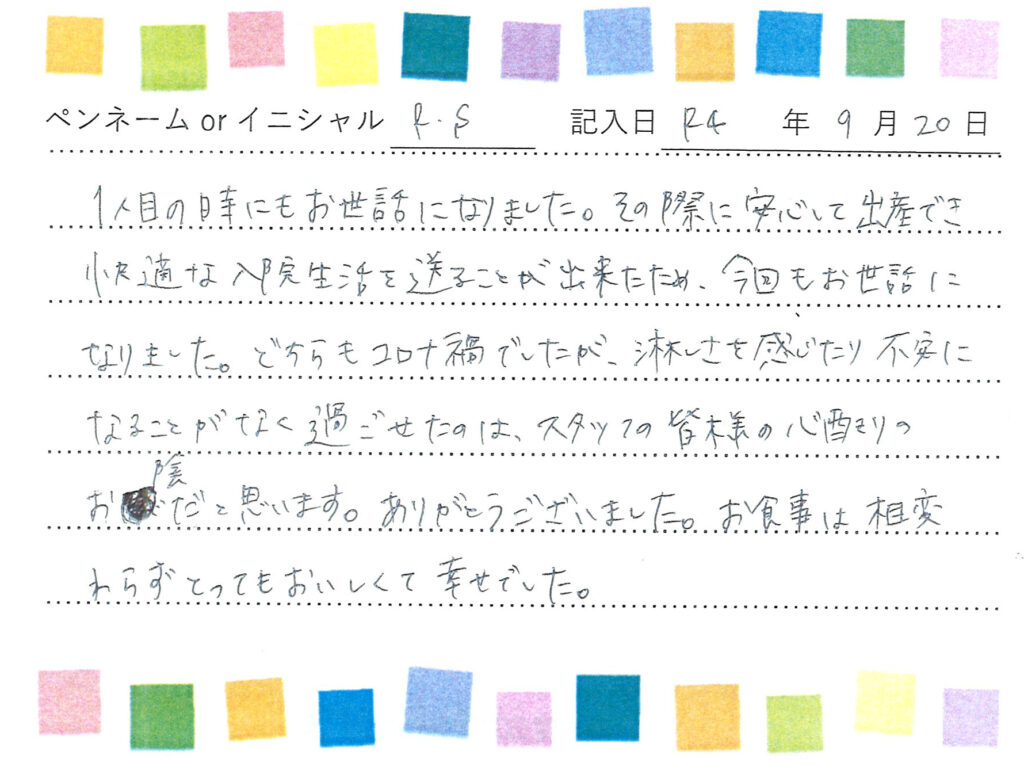 ペンネーム or イニシャル R.S 記入日 R4 年 9 月 20 日
1人目の時にもお世話になりました。その際に安心して出産でき
快適な入院生活を送ることが出来たため、今回もお世話に
なりました。どちらもコロナ禍でしたが、淋しさを感じたり不安に
なることがなく過ごせたのは、スタッフの皆様の心配りの
お陰だと思います。ありがとうございました。お食事は相変
わらずとってもおいしくて幸せでした。